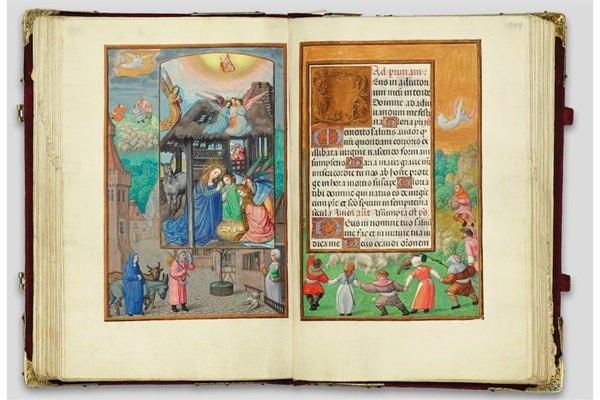 Ad primam:
Deus in adiutori
um meū intende
Domine ad adiu
uandum me festi
na Gloria pr̄i
Memento salutis auctor q̄
nr̄i quondam corporis ex
illibata virgine nascendo formam
sumpseris Maria mater gracie m̄r
misericordie tu nos ab hoste prote
ge in hora mortis suscipe Gloria
tibi domine qui natus es de virgi
ne cum p̄re et sc̄o spiritu in sempiterna
secula Amen ant̄ Assumpta est p̄s
Deus in nomine tuo saluū
me fac et in virtute tua iu
dica me Deus exaudi orationem